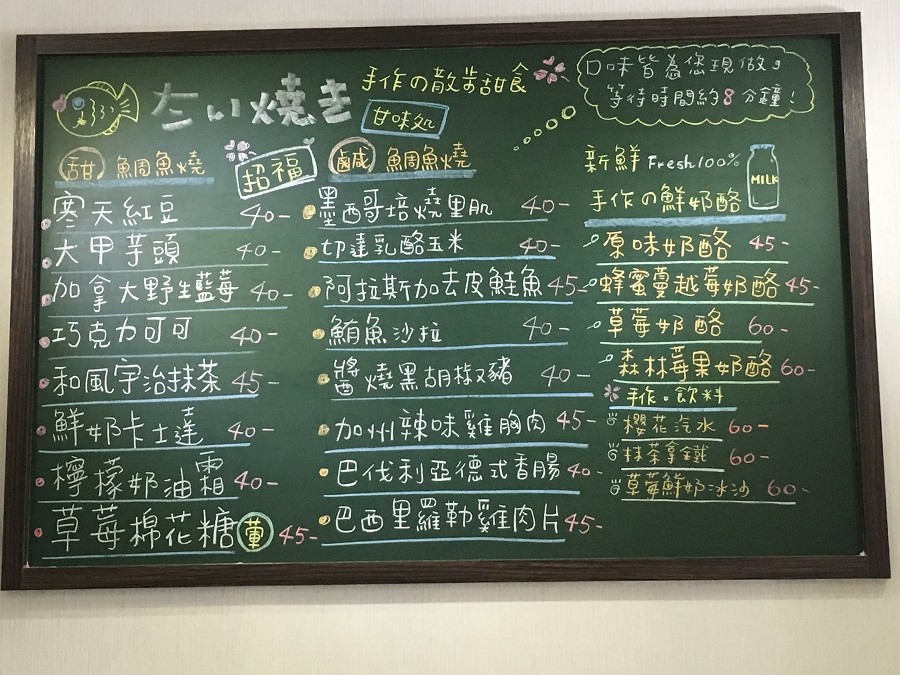 たい焼き 手作の散步甜食
甘味処
口味皆為您現做,
等待時間約8分鐘!
甜 鯛魚燒
招福
寒天紅豆 40-
大甲芋頭 40-
加拿大野生藍莓 40-
巧克力可可 40-
和風宇治抹茶 45-
鮮奶卡士達 40-
檸檬奶油霜 40-
草莓棉花糖 葷 45-
鹹 鯛魚燒
墨西哥培燒里肌 40-
切達乳酪玉米 40-
阿拉斯加去皮鮭魚 45-
鮪魚沙拉 40-
醬燒黑胡椒豬 40-
加州辣味雞胸肉 45-
巴伐利亞德式香腸 40-
巴西里羅勒雞肉片 45-
新鮮 Fresh 100%
MILK
手作の鮮奶酪
原味奶酪 45-
蜂蜜蔓越莓奶酪 45-
草莓奶酪 60-
森林莓果奶酪 60-
手作。飲料
櫻花汽水 60-
抹茶拿鐵 60-
草莓鮮奶冰沙 60-